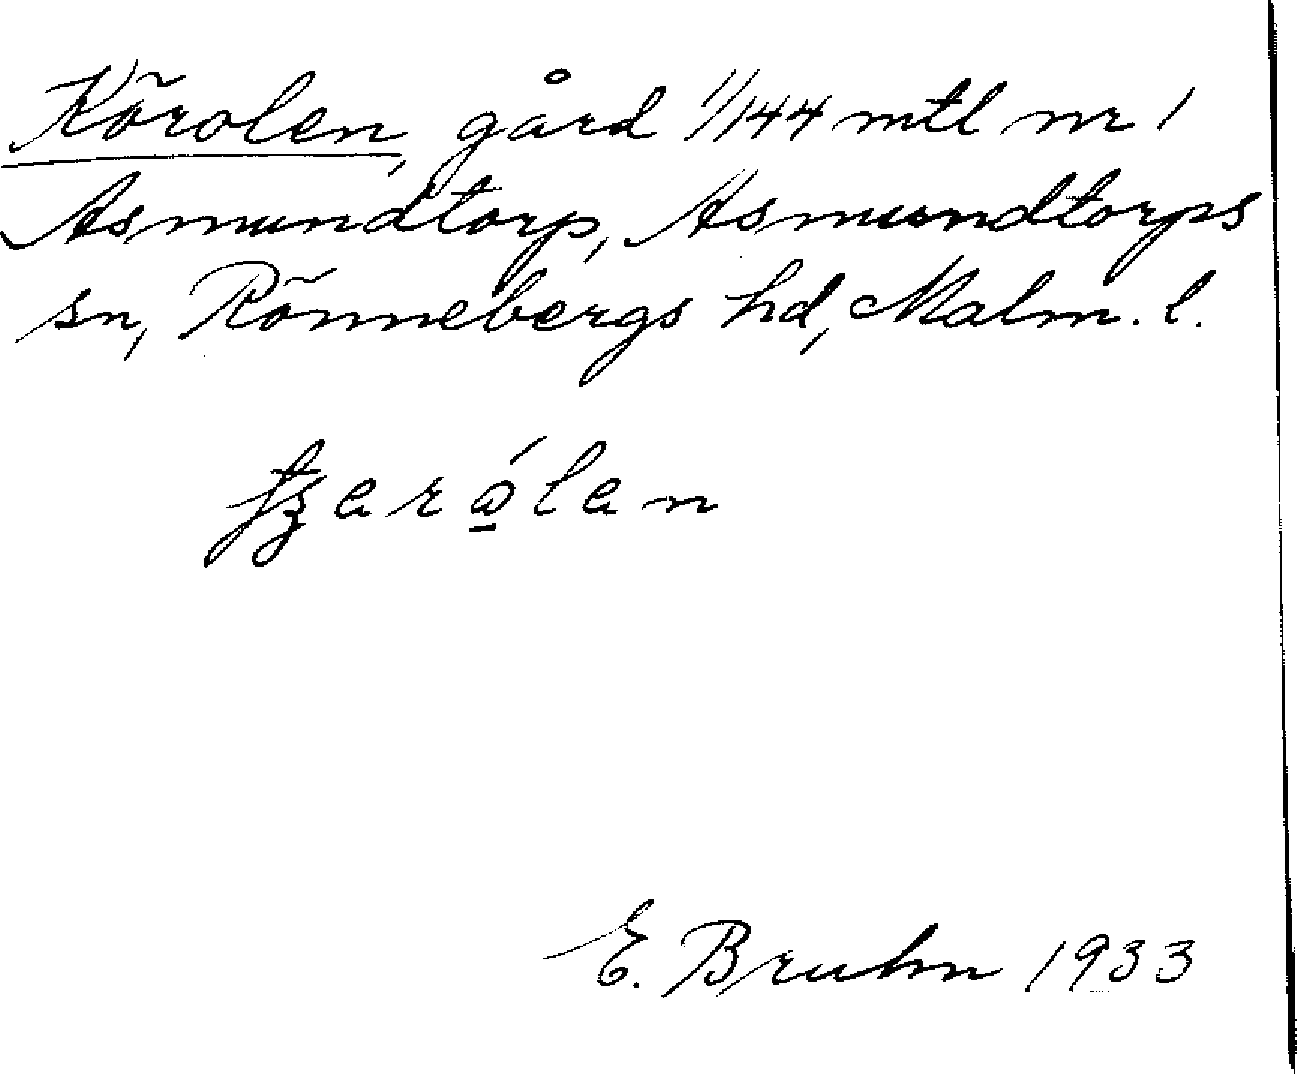 Körolen, gård 1/144 mtl nr 1
Asmundtorp, Asmundtorps
sn, Rönnebergs hd, Malm. l.
E. Bruhn 1933